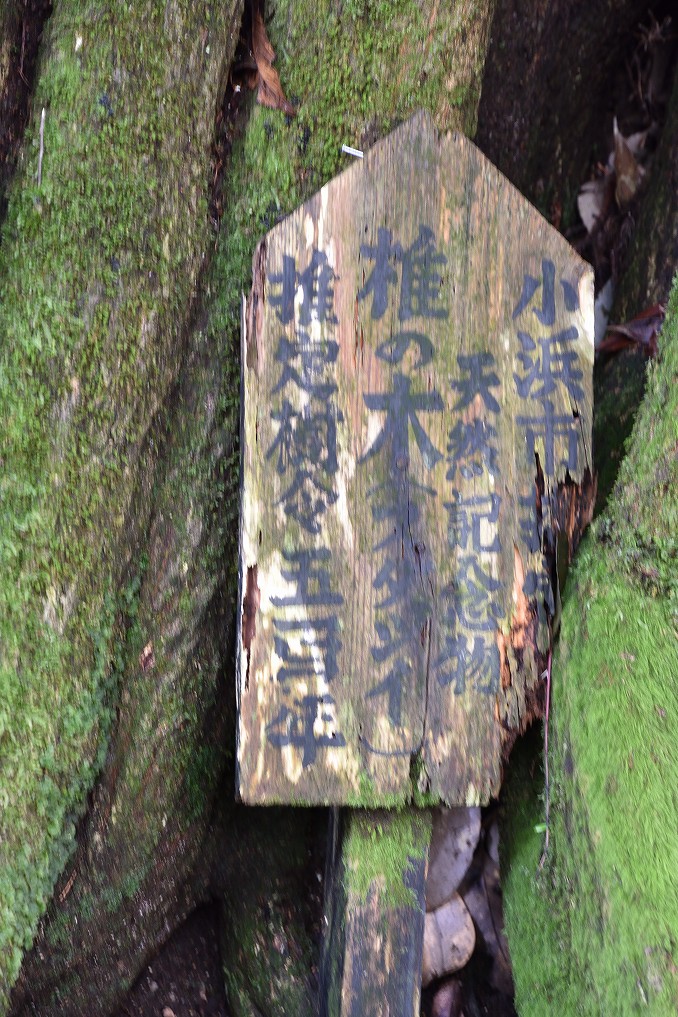 小浜市
天然記念物
椎の木(スダジイ)
推定樹令五百年